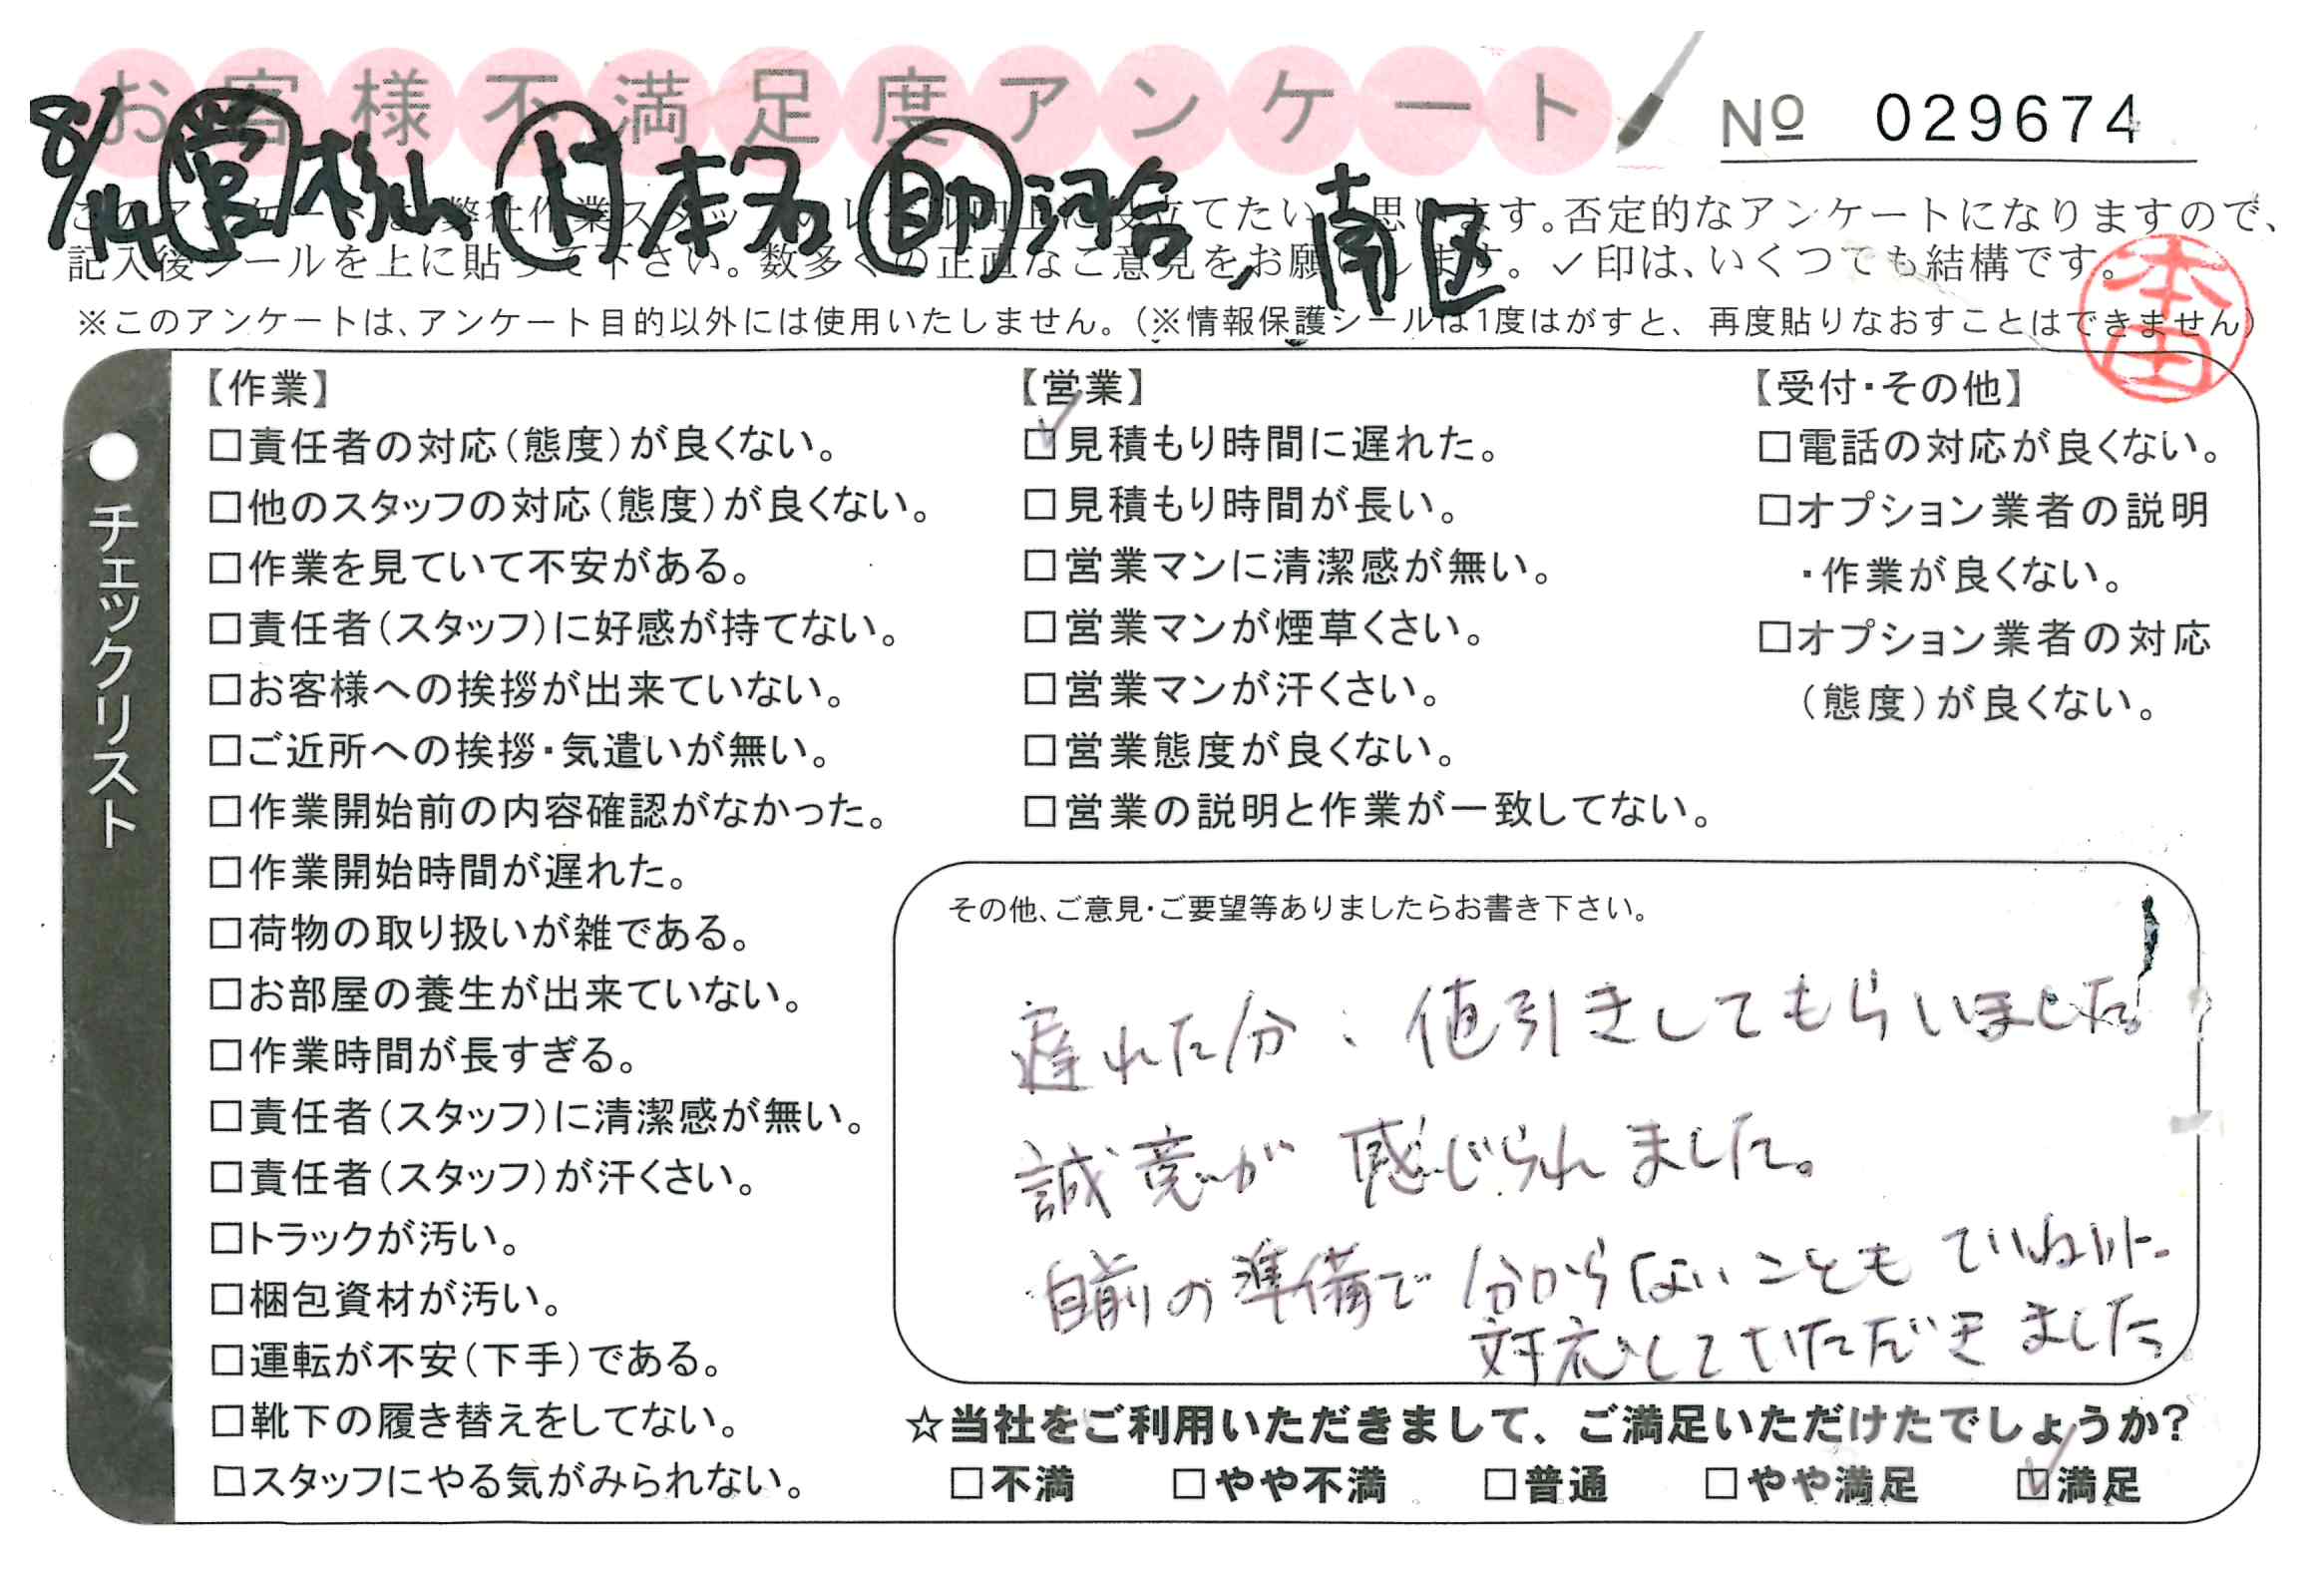 お客様不満足度アンケート
No 029674
8/14 営 桧山 ト 本名 助 河合 南区
このアンケートは、弊社作業スタッフのレベル向上に役立てたいと思います。否定的なアンケートになりますので、
記入後シールを上に貼って下さい。数多くの正直なご意見をお願いします。✓印は、いくつでも結構です。
※このアンケートは、アンケート目的以外には使用いたしません。(※情報保護シールは1度はがすと、再度貼りなおすことはできません)
本田
●チェックリスト
【作業】
□責任者の対応(態度)が良くない。
□他のスタッフの対応(態度)が良くない。
□作業を見ていて不安がある。
□責任者(スタッフ)に好感が持てない。
□お客様への挨拶が出来ていない。
□ご近所への挨拶・気遣いが無い。
□作業開始前の内容確認がなかった。
□作業開始時間が遅れた。
□荷物の取り扱いが雑である。
□お部屋の養生が出来ていない。
□作業時間が長すぎる。
□責任者(スタッフ)に清潔感が無い。
□責任者(スタッフ)が汗くさい。
□トラックが汚い。
□梱包資材が汚い。
□運転が不安(下手)である。
□靴下の履き替えをしてない。
□スタッフにやる気がみられない。
【営業】
☑見積もり時間に遅れた。
□見積もり時間が長い。
□営業マンに清潔感が無い。
□営業マンが煙草くさい。
□営業マンが汗くさい。
□営業態度が良くない。
□営業の説明と作業が一致してない。
【受付・その他】
□電話の対応が良くない。
□オプション業者の説明
・作業が良くない。
□オプション業者の対応
(態度)が良くない。
その他、ご意見・ご要望等ありましたらお書き下さい。
遅れた分、値引きしてもらいました。
誠意が感じられました。
自前の準備で分からないこともていねいに
対応していただきました。
☆当社をご利用いただきまして、ご満足いただけたでしょうか?
□不満 □やや不満 □普通 □やや満足 ☑満足